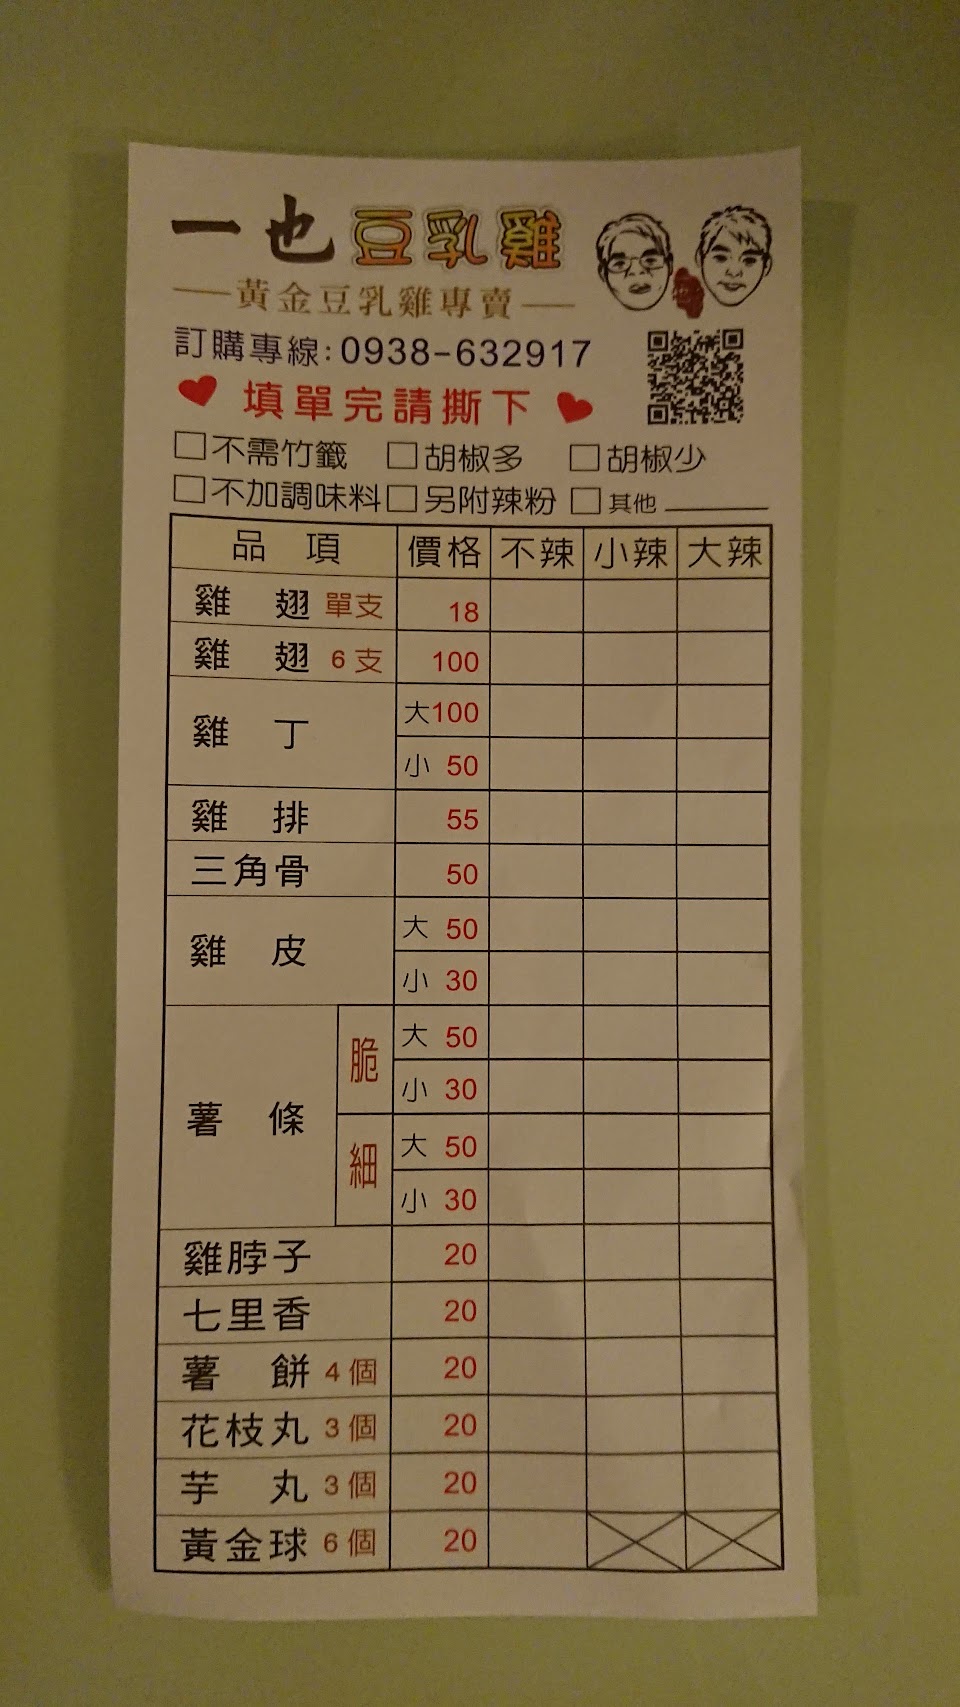 一也豆乳雞
黃金豆乳雞專賣
訂購專線:0938-632917
填單完請撕下
不需竹籤 胡椒多 胡椒少
不加調味料 另附辣粉 其他
品項 價格 不辣 小辣 大辣
雞翅 單支 18
雞翅 6支 100
雞丁 大100
小 50
雞排 55
三角骨 50
雞皮 大 50
小 30
薯條 脆 大 50
小 30
細 大 50
小 30
雞脖子 20
七里香 20
薯餅 4個 20
花枝丸 3個 20
芋丸 3個 20
黃金球 6個 20